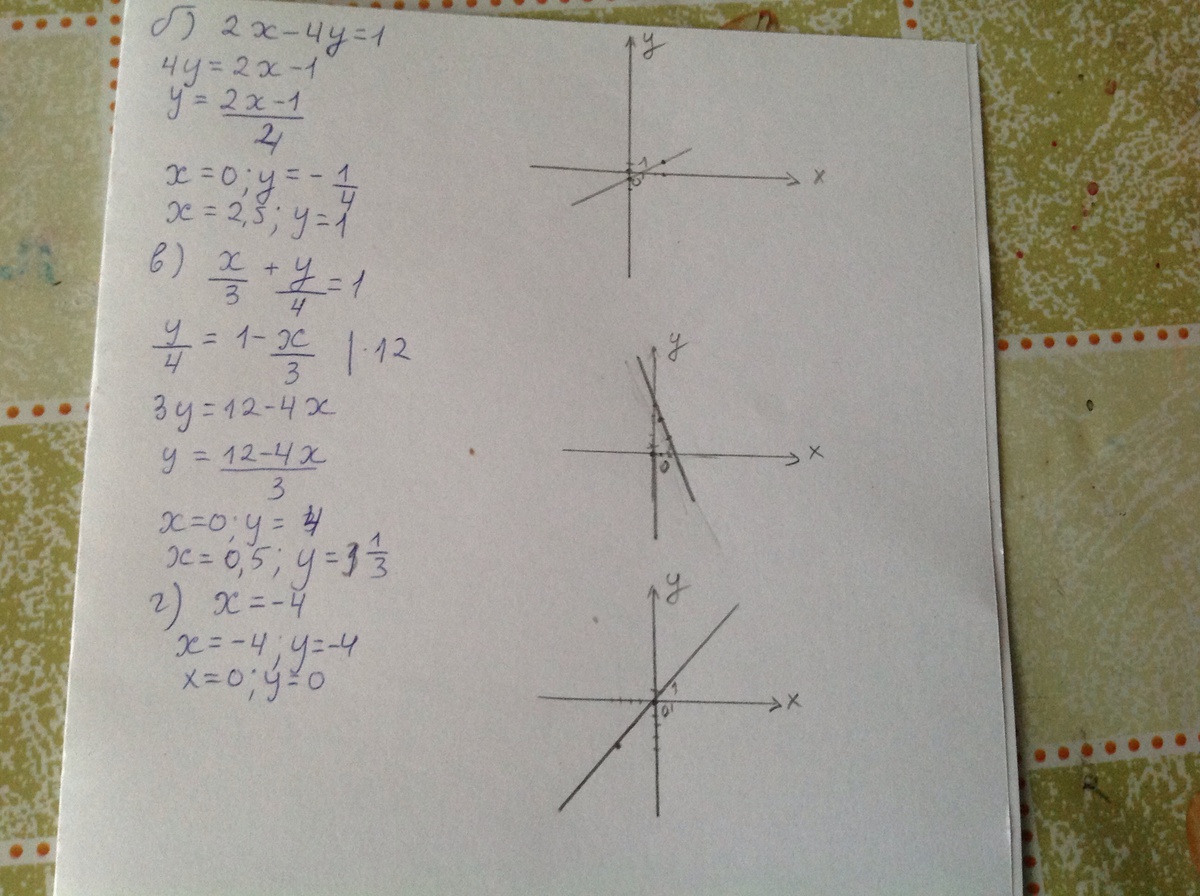 б) 2x-4y=1
4y=2x-1
y=(2x-1)/4
x=0; y=-1/4
x=2,5; y=1
в) x/3+y/4=1
y/4=1-x/3 |·12
3y=12-4x
y=(12-4x)/3
x=0; y=4
x=0,5; y=3 1/3
г) x=-4
x=-4; y=-4
x=0; y=0
y
1
0
x
y
0
x
y
1
0 1
x